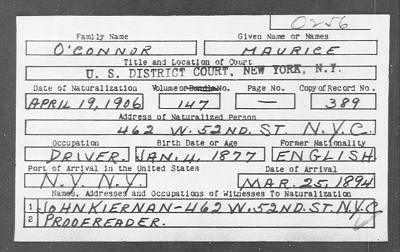 0256
Family Name Given Name or Names
O'CONNOR MAURICE
Title and Location of Court
U. S. DISTRICT COURT, NEW YORK, N.Y.
Date of Naturalization Volume or Bundle No. Page No. Copy of Record No.
APRIL 19, 1906 147 — 389
Address of Naturalized Person
462 W. 52ND. ST. N.Y.C.
Occupation Birth Date or Age Former Nationality
DRIVER. JAN. 4. 1877 ENGLISH
Port of Arrival in the United States Date of Arrival
N.Y. N.Y. MAR. 25, 1894
Names, Addresses and Occupations of Witnesses To Naturalization
1 JOHN KIERNAN-462 W. 52ND. ST. N.Y.C.
2 PROOFREADER.